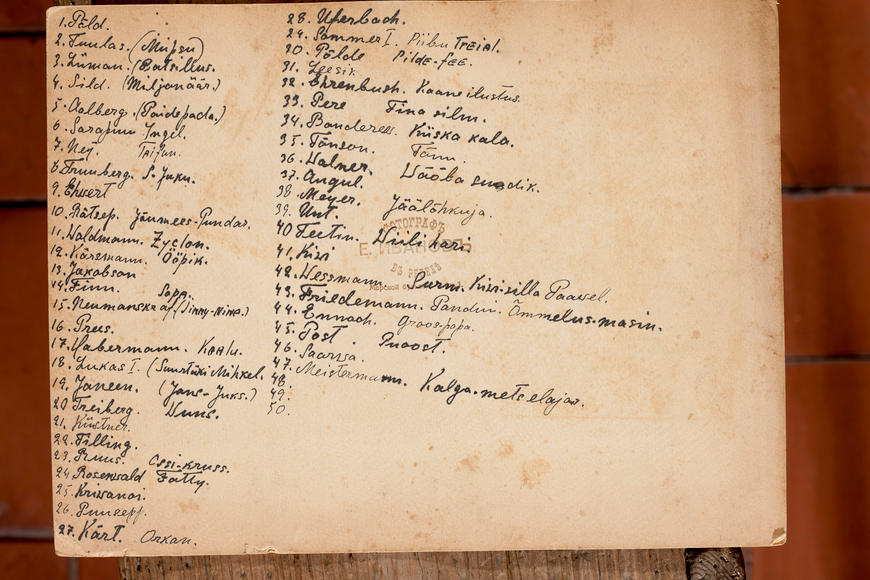 1. Põld.
2. Tuulas. (Miipsu)
3. Liiman. (Ratsillus.
4. Sild. (Miljonäär.)
5. Aalberg. (Paidepada.)
6. Sarapuu Ingel.
7. Nei. Taifun.
8. Trumberg. S. Juku.
9. Ehvert
10. Rätsep. Jõnmees-Pundar.
11. Waldmann. Zyclon.
12. Käresmann. Ööpik.
13. Jakobson
14. Finn. Sopa.
15. Neumanskraf (Jinny-Nima.)
16. Preus.
17. Habermann. Kaalu.
18. Lukas I. (Suurtüki Mihkel.
19. Janeen. (Jans-Juks.)
20 Treiberg. Nuns.
21. Küstner.
22. Tilling.
23. Ruus. Ossi-kruss.
24 Rosenwald Fatty.
25. Kriisanoi.
26. Puusepp.
27. Kärt. Orkan.
28. Uferbach.
29. Sommer I. Piibu Treial.
30. Põlde Pilde-fee.
31. Leesik
32. Ehrenbush. Kaaneilustus.
33. Pere Tina silm.
34. Banderes. Kiiska kala.
35. Tõnson. Tõnn.
36. Walner.
37. Angul. Wööba sundik.
38. Meyer.
39. Unt. Jäälõhkuja.
40 Teetin. Wiilihari.
41. Kivi
42. Wessmann Surm. Kivisilla Paavel.
43. Friedemann. Pandini. Õmmelus-masin.
44. Ennach. Groos-papa.
45. Post. Puoost.
46. Saarva.
47. Meistermann. Kalga-metselajas.
48.
49.
50.
ФОТОГРАФЪ
Е. ИВАНОВЪ
ВЪ РЕВЕЛѢ